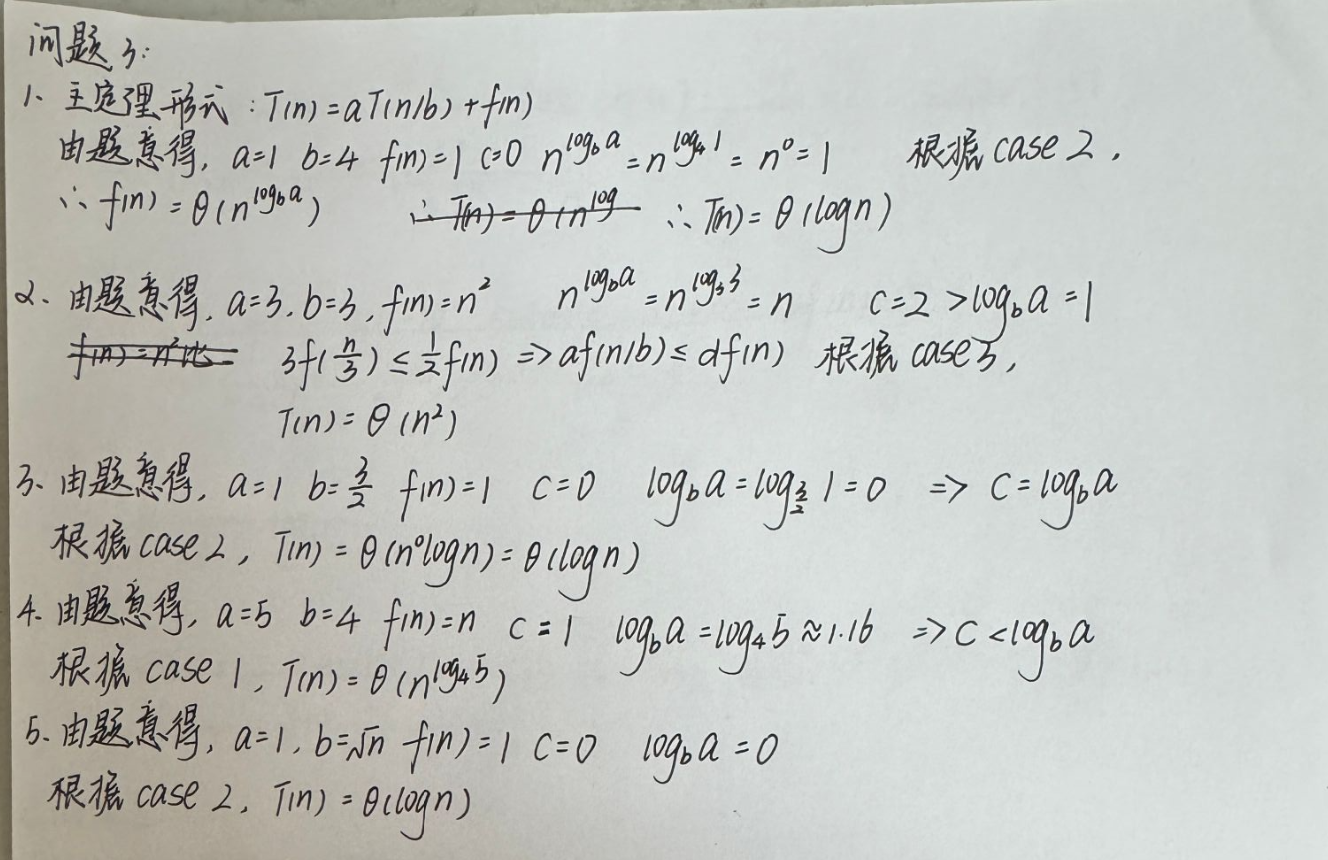 问题3:
1、主定理形式:T(n)=aT(n/b)+f(n)
由题意得, a=1 b=4 f(n)=1 c=0 n^{log_b a}=n^{log_4 1}=n^0=1 根据case 2,
∴f(n)=θ(n^{log_b a}) ∴T(n)=θ(n^{log ∴T(n)=θ(logn)
2、由题意得, a=3, b=3, f(n)=n^2 n^{log_b a}=n^{log_3 3}=n c=2>log_b a=1
3f(n/3)≤1/2f(n) => af(n/b)≤df(n) 根据 case3,
T(n)=θ(n^2)
3、由题意得, a=1 b=3/2 f(n)=1 c=0 log_b a=log_{3/2} 1=0 => c=log_b a
根据case 2, T(n)=θ(n^0logn)=θ(logn)
4、由题意得, a=5 b=4 f(n)=n c=1 log_b a=log_4 5≈1.16 => c<log_b a
根据 case 1, T(n)=θ(n^{log_4 5})
5、由题意得, a=1, b=√n f(n)=1 c=0 log_b a=0
根据 case 2, T(n)=θ(logn)